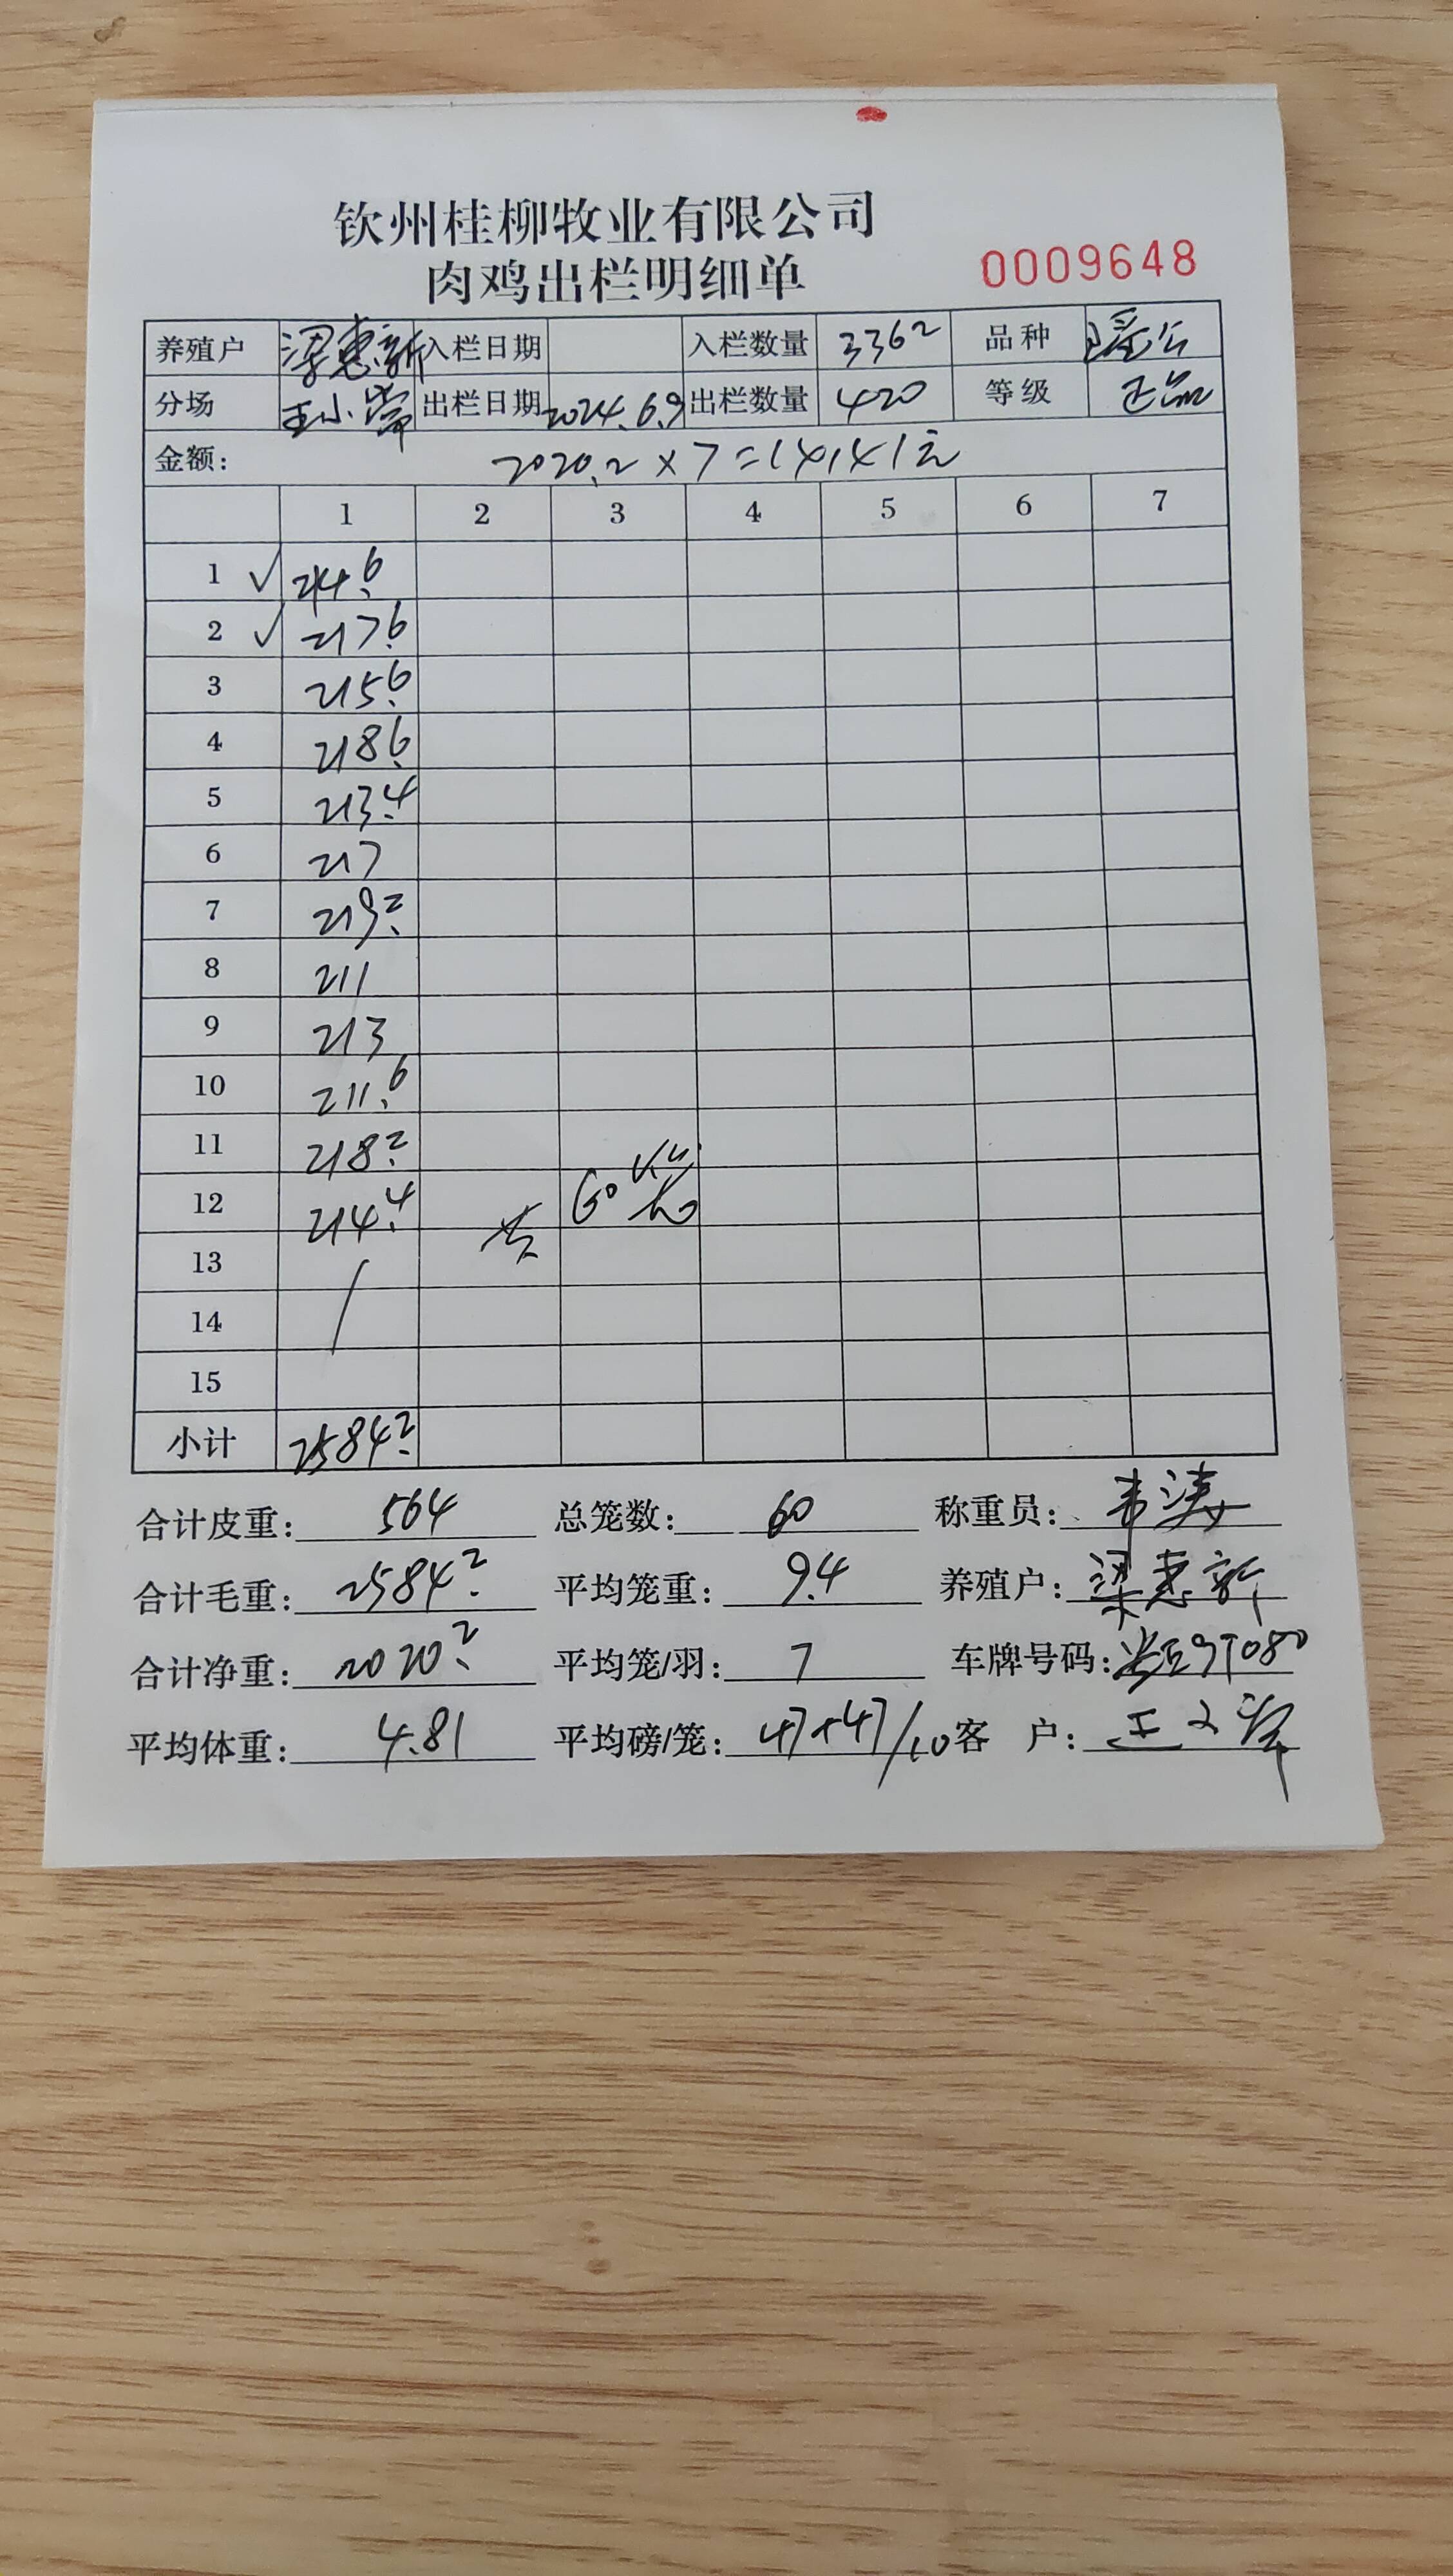 钦州桂柳牧业有限公司
肉鸡出栏明细单
0009648
养殖户 梁惠新 入栏日期 入栏数量 3362 品种 瑶公
分场 出栏日期 2024.6.9 出栏数量 420 等级 正品
金额: 2020.2×7=14141元
1 2 3 4 5 6 7
1 ✓ 214.6
2 ✓ 217.6
3 215.6
4 218.6
5 213.4
6 217
7 219.2
8 211
9 213
10 211.6
11 218.2
12 214.4 60
13
14
15
小计 2584.2
合计皮重: 564 总笼数: 60 称重员: 韦涛
合计毛重: 2584.2 平均笼重: 9.4 养殖户: 梁惠新
合计净重: 2020.2 平均笼/羽: 7 车牌号码:
平均体重: 4.81 平均磅/笼: 47+47/10 客 户: 王